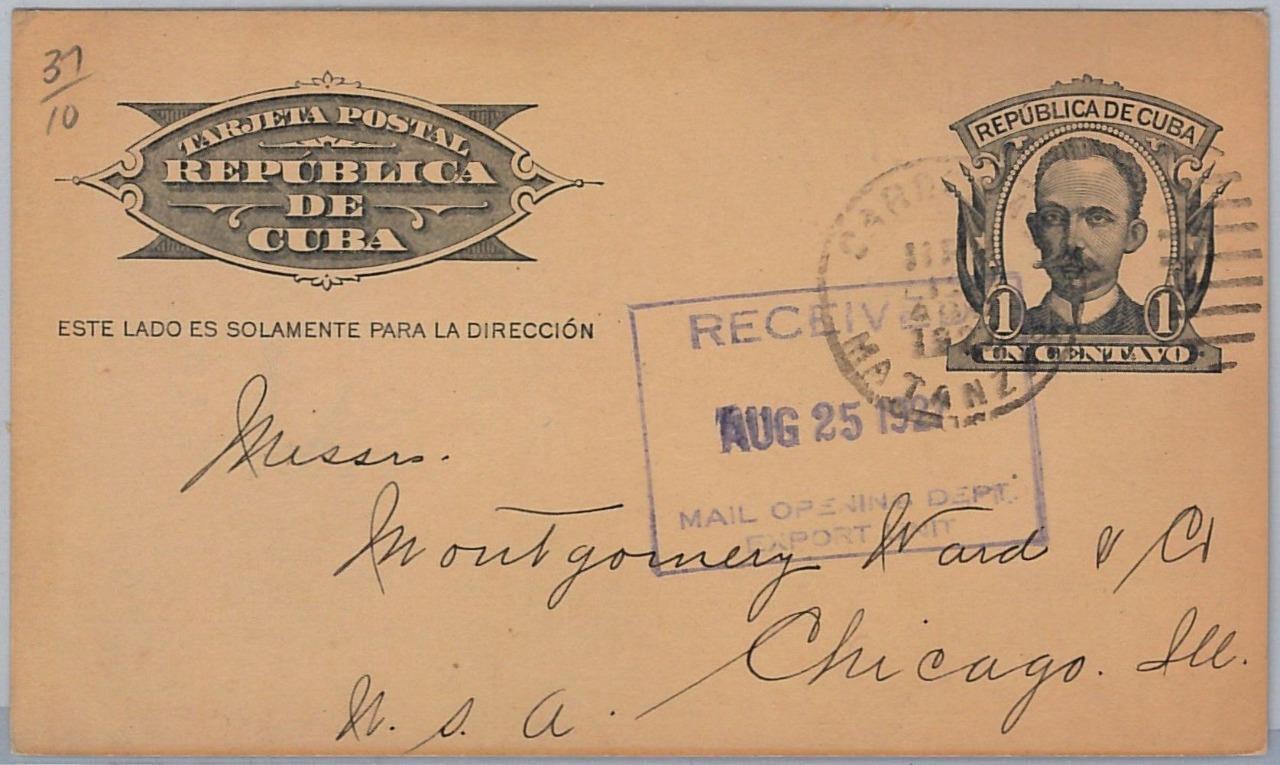 37
10
TARJETA POSTAL
REPÚBLICA
DE
CUBA
REPÚBLICA DE CUBA
1 1
UN CENTAVO
ESTE LADO ES SOLAMENTE PARA LA DIRECCIÓN
MATANZAS
RECEIVED
AUG 25
MAIL OPENING DEPT.
EXPORT UNIT
Messrs.
Montgomery Ward & Co
Chicago. Ill.
U. S. A.